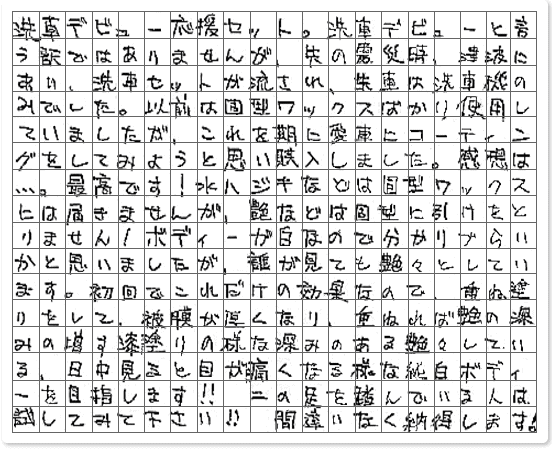 洗車デビュー応援セット。洗車デビューと言
う訳ではありませんが、先の震災時、津波に
あい、洗車セットが流され、失車は洗車機の
みでした。以前は固型ワックスばかり使用し
ていましたが、これを期に愛車にコーティン
グをしてみようと思い購入しました。感想は
…。最高です！水ハジキなどは固型ワックス
には届きませんが、艶などは固型に引けをと
りません！ボディーが白なので分かりづらい
かと思いましたが、誰が見ても艶々としてい
ます。初回でこれだけの効果なので、重ね塗
りをして、被膜が厚くなり、重ねれば艶の深
みの増す漆塗りの様な深みのある艶々してい
る、日中見ると目が痛くなる様な純白ボディ
ーを目指します！！　二の足を踏んでいる人は
試してみて下さい！！　間違いなく納得します！